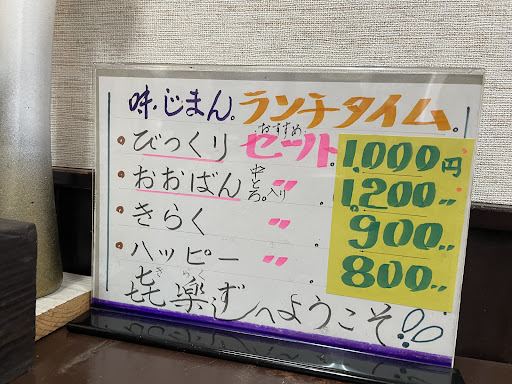 味・じまん。ランチタイム。
おすすめ
・びっくりセット.1,000円
・おおばん中とろ。入り〃.1,200〃
・きらく〃.900〃
・ハッピー〃.800〃
きらく
㐂楽ずしへようこそ!!